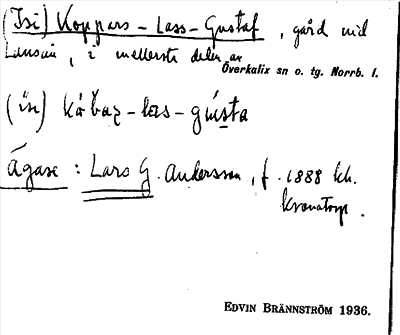 (Isi) Koppars-Lass-Gustaf, gård vid
Lansån, i mellersta delen av
Överkalix sn o. tg. Norrb. l.
(isi) kåbaʐ-las-gústa
Ägare : Lars G. Andersson, f. 1888 kh.
kronotorp.
EDVIN BRÄNNSTRÖM 1936.